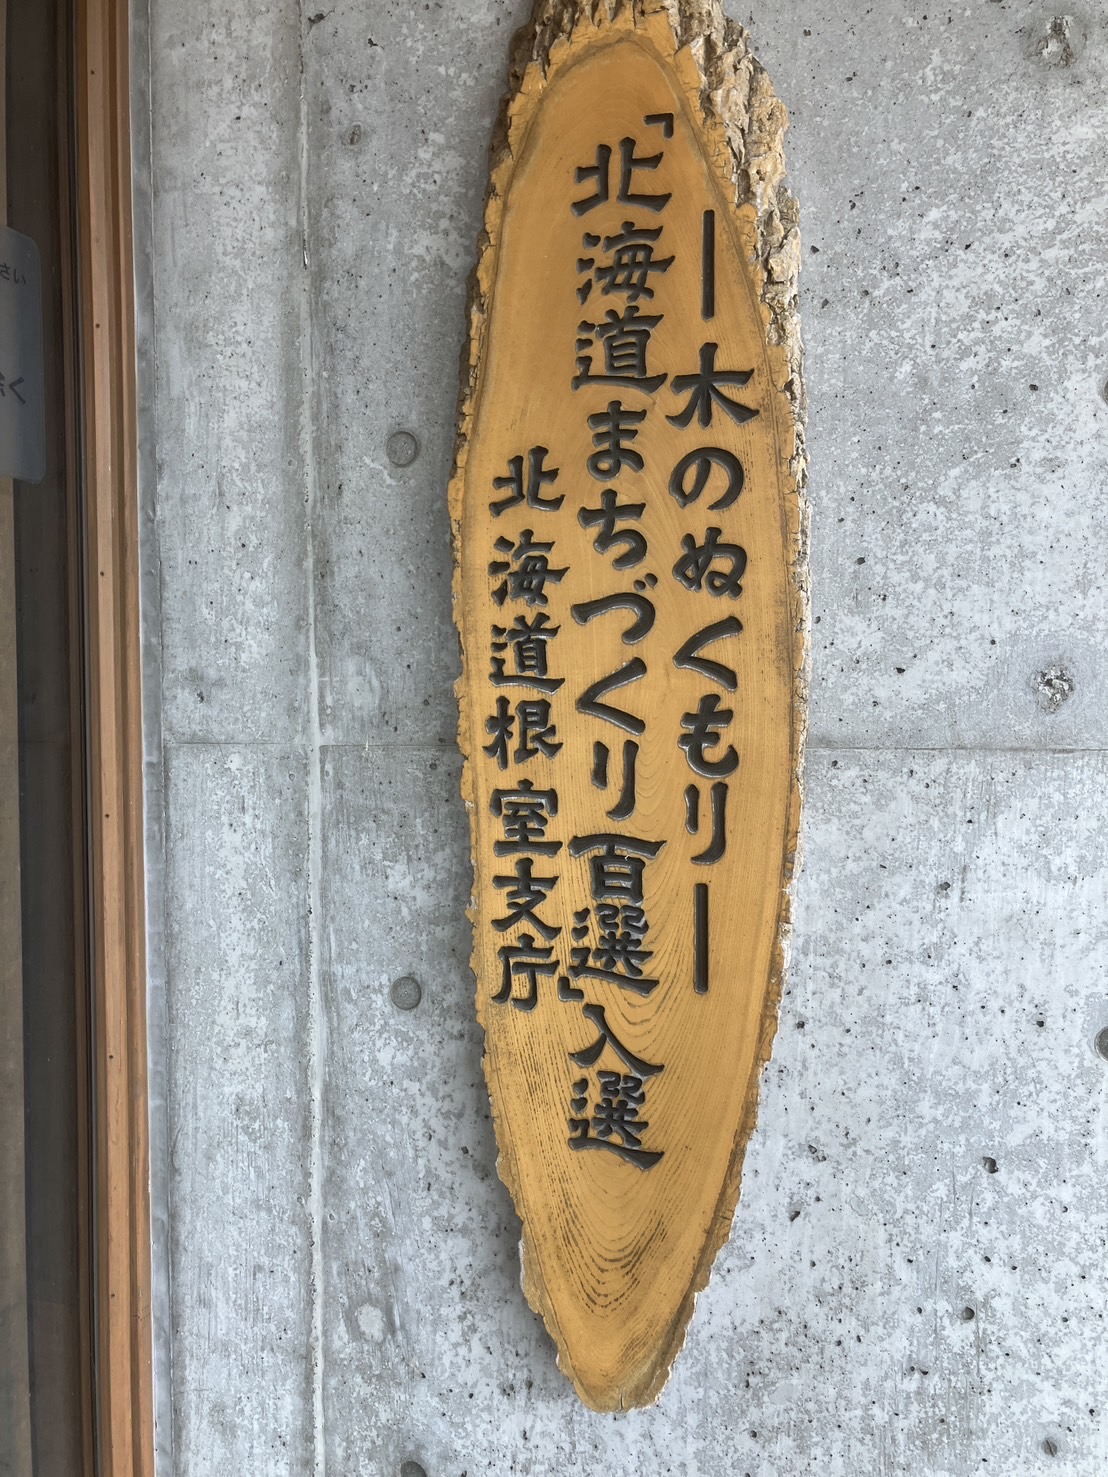 ―木のぬくもり―
「北海道まちづくり百選」入選
北海道根室支庁
さい